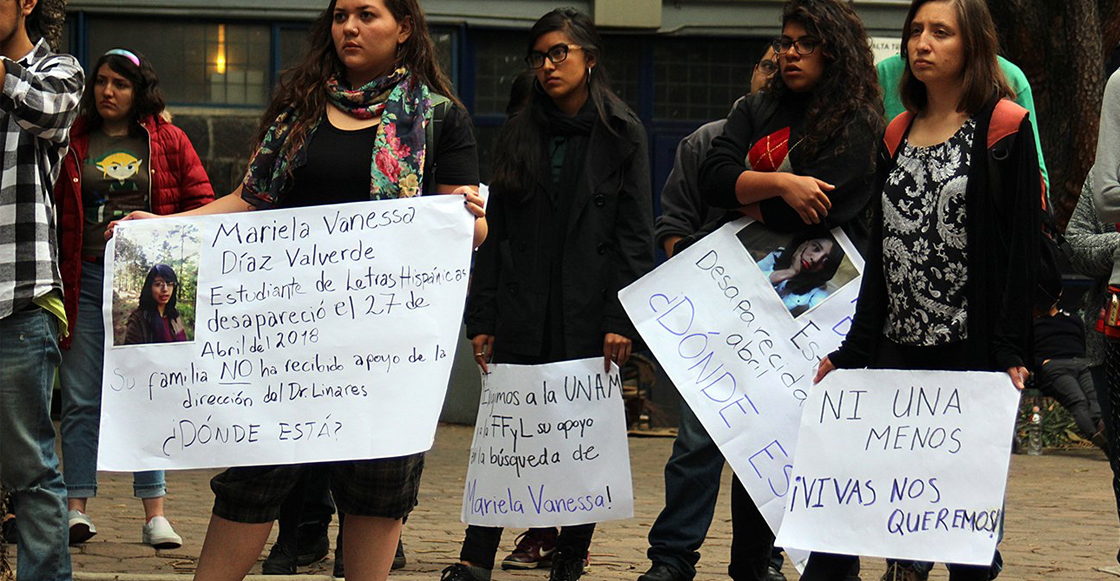 Mariela Vanessa
Díaz Valverde
Estudiante de Letras Hispánicas
desapareció el 27 de
Abril del 2018
Su familia NO ha recibido apoyo de la
dirección del Dr. Linares
¿DÓNDE ESTÁ?
a la UNAM
la FFyL su apoyo
la búsqueda de
Mariela Vanessa!
Desaparecida
abril
¿DÓNDE
NI UNA
MENOS
¡VIVAS NOS
QUEREMOS!